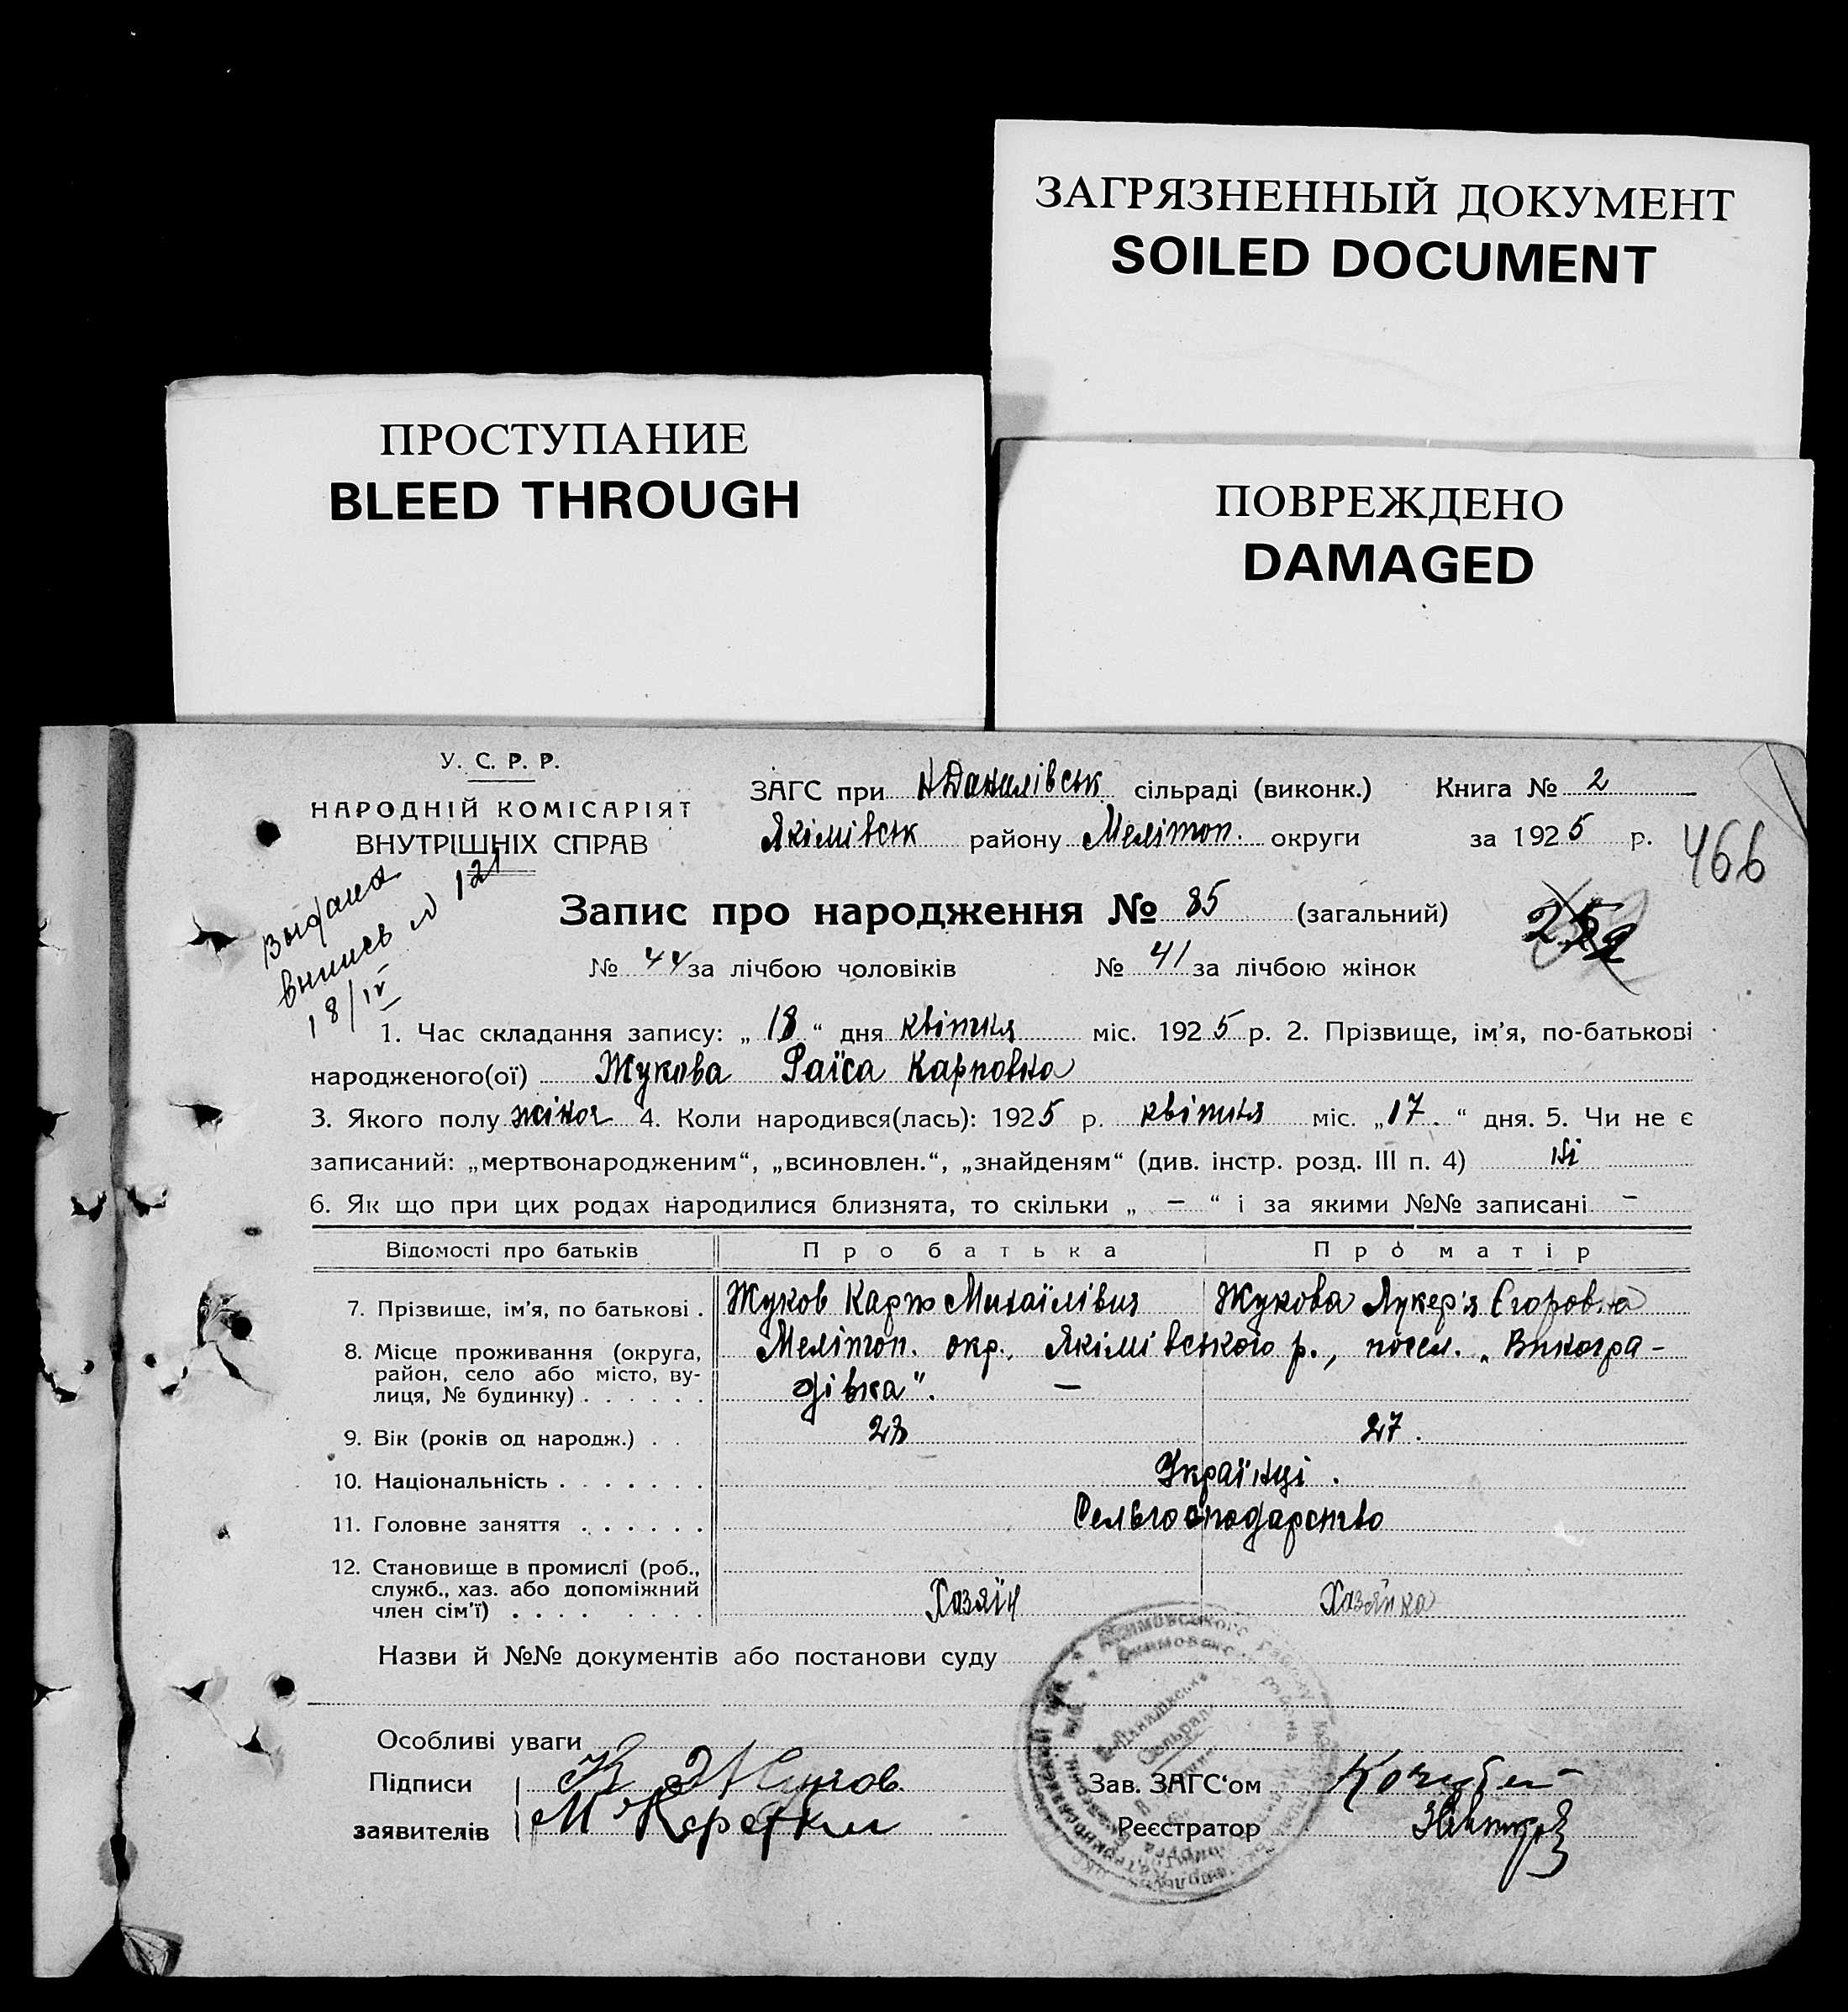 ЗАГРЯЗНЕННЫЙ ДОКУМЕНТ
SOILED DOCUMENT
ПРОСТУПАНИЕ
BLEED THROUGH
ПОВРЕЖДЕНО
DAMAGED
У. С. Р. Р.
НАРОДНІЙ КОМІСАРІЯТ
ВНУТРІШНІХ СПРАВ
ЗАГС при Н Данилівськ сільраді (виконк.) Книга № 2
Якімівськ району Мелітоп. округи за 1925 р.
466
Выдана
выпись № 121
18/IV
Запис про народження № 85 (загальний)
252
№ 44 за лічбою чоловіків № 41 за лічбою жінок
1. Час складання запису: „18“ дня квітня міс. 1925 р. 2. Прізвище, ім’я, по-батькові
народженого(ої) Жукова Раїса Карповна
3. Якого полу жіноч 4. Коли народився(лась): 1925 р. квітня міс. „17.“ дня. 5. Чи не є
записаний: „мертвонародженим“, „всиновлен.“, „знайденям“ (див. інстр. розд. III п. 4) Ні
6. Як що при цих родах народилися близнята, то скільки „ – “ і за якими №№ записані –
Відомості про батьків Про батька Про матір
7. Прізвище, ім’я, по батькові . Жуков Карпо Михаїлівич Жукова Лукер'я Єгоровна
8. Місце проживання (округа, Мелітоп. окр., Якімівського р., посел. „Виногра-
район, село або місто, ву-
лиця, № будинку) . . . . . . дівка". —
9. Вік (років од народж.) . . 28 27.
10. Національність . . . . . . . Українці.
11. Головне заняття . . . . . . Сельгосподарство
12. Становище в промислі (роб.,
служб., хаз. або допоміжний
член сім’ї) . . . . . . . . . Хазяїн Хазяйка
Назви й №№ документів або постанови суду
Особливі уваги
Підписи К Жуков Зав. ЗАГС‘ом Кочубей
заявителів М Реєстратор